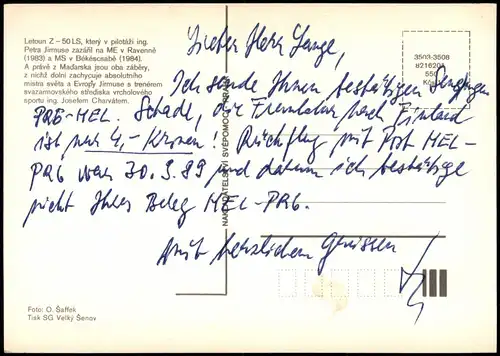 Letoun Z – 50 LS, který v pilotáži ing.
Petra Jirmuse zazářil na ME v Ravenně
(1983) a MS v Békéscsabě (1984).
A právě z Maďarska jsou oba záběry,
z nichž dolní zachycuje absolutního
mistra světa a Evropy Jirmuse s trenérem
svazarmovského střediska vrcholového
sportu ing. Josefem Charvátem.
3503-3508
Lieber Herr Lange,
Ich sende Ihnen bestätigen
PRG-HEL. Schade, die nach Finland
ist nur 4,- Kronen! Rückflug mit Post HEL-
PRG war 30.3.89 und darum ich bestätige
nicht Ihren Beleg HEL-PRG.
mit herzlichen Grüssen
NAKLADATELSTVÍ SVÉPOMOC
Foto: O. Šaffek
Tisk SG Velký Šenov